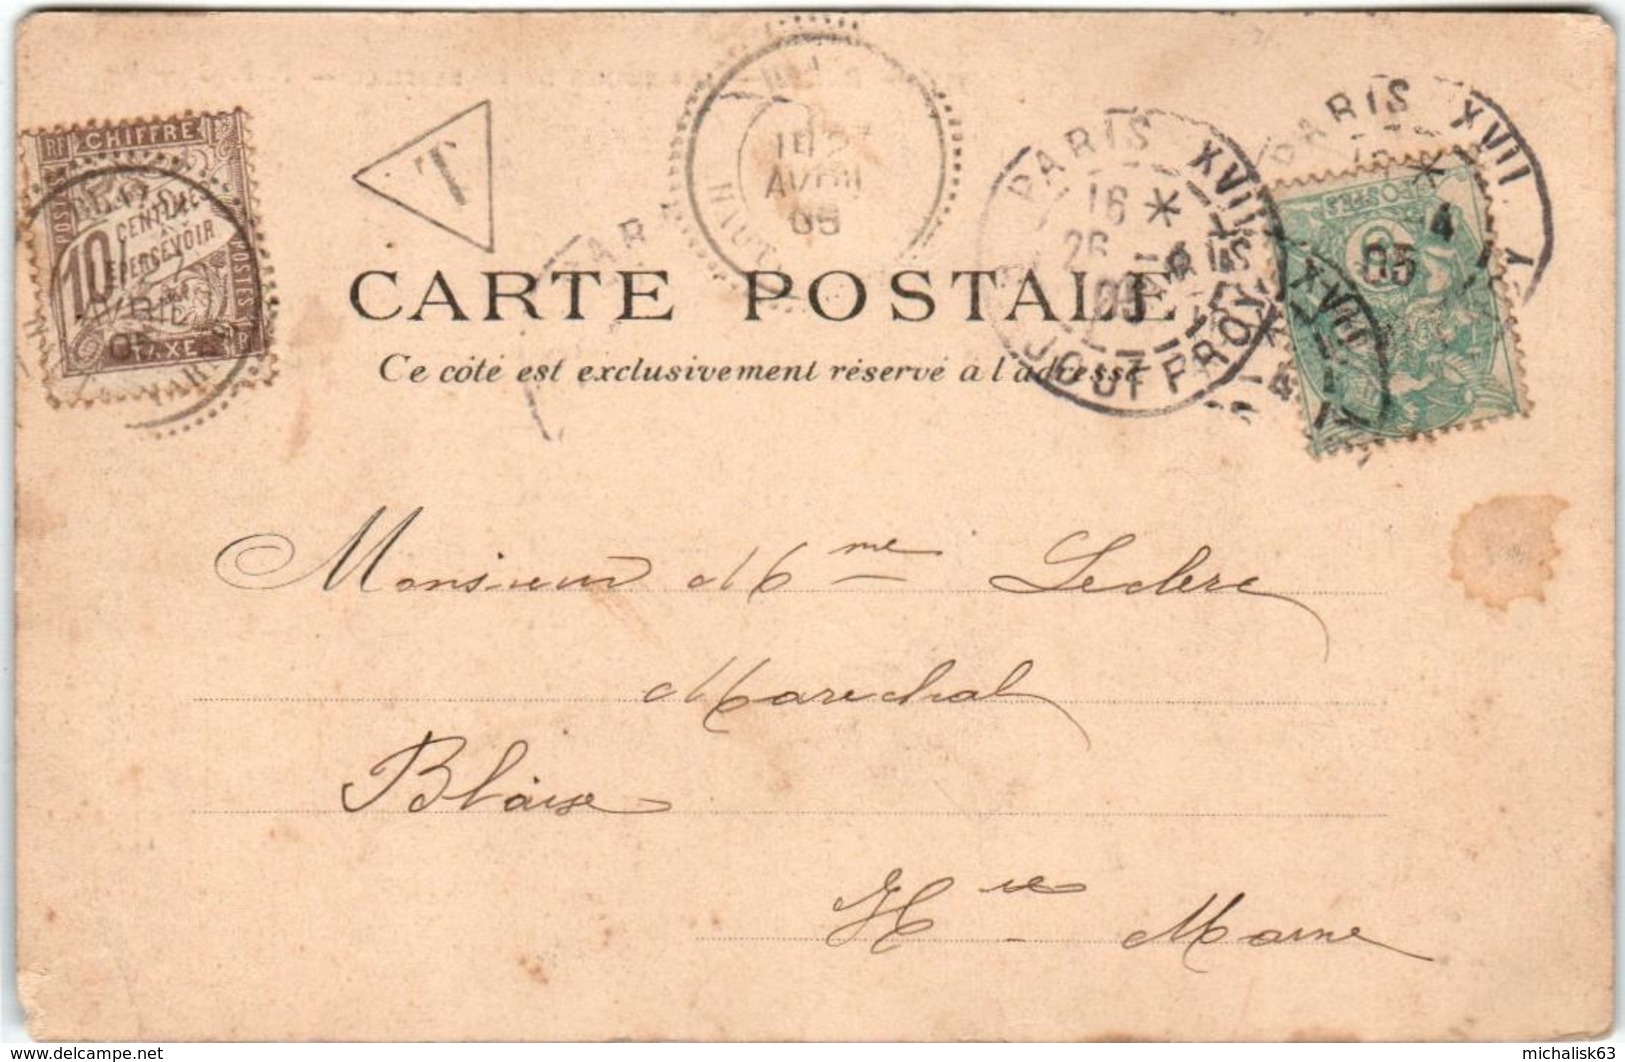 RF CHIFFRE
POSTES
10 CENTIMES
À PERCEVOIR
POSTES
TAXE
AVRIL
05
T
HAUTE
AVRIL
05
PARIS XVII
16 *
26
05
JOUFFROY
PARIS XVII
*
4
05
POSTES
5
XVII
CARTE POSTALE
Ce côté est exclusivement réservé à l'adresse
Monsieur M Mme Leclerc
Marechal
Blaise
Hte Marne
www.delcampe.net
michalisk63